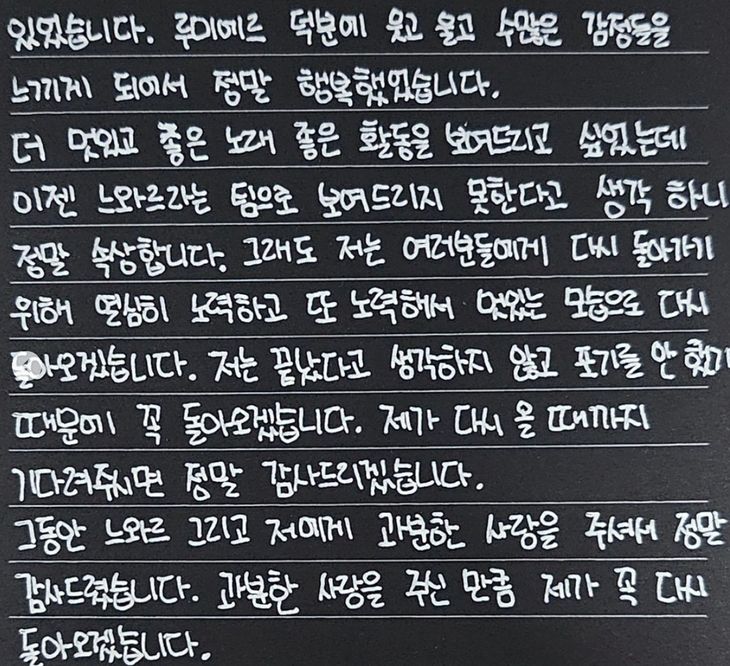 있었습니다. 루미에르 덕분에 웃고 울고 수많은 감정들을
느끼게 되어서 정말 행복했었습니다.
더 멋있고 좋은 노래 좋은 활동을 보여드리고 싶었는데
이젠 느와르라는 팀으로 보여드리지 못한다고 생각 하니
정말 속상합니다. 그래도 저는 여러분들에게 다시 돌아가기
위해 열심히 노력하고 또 노력해서 멋있는 모습으로 다시
돌아오겠습니다. 저는 끝났다고 생각하지 않고 포기를 안 했기
때문에 꼭 돌아오겠습니다. 제가 다시 올 때까지
기다려주시면 정말 감사드리겠습니다.
그동안 느와르 그리고 저에게 과분한 사랑을 주셔서 정말
감사드렸습니다. 과분한 사랑을 주신 만큼 제가 꼭 다시
돌아오겠습니다.